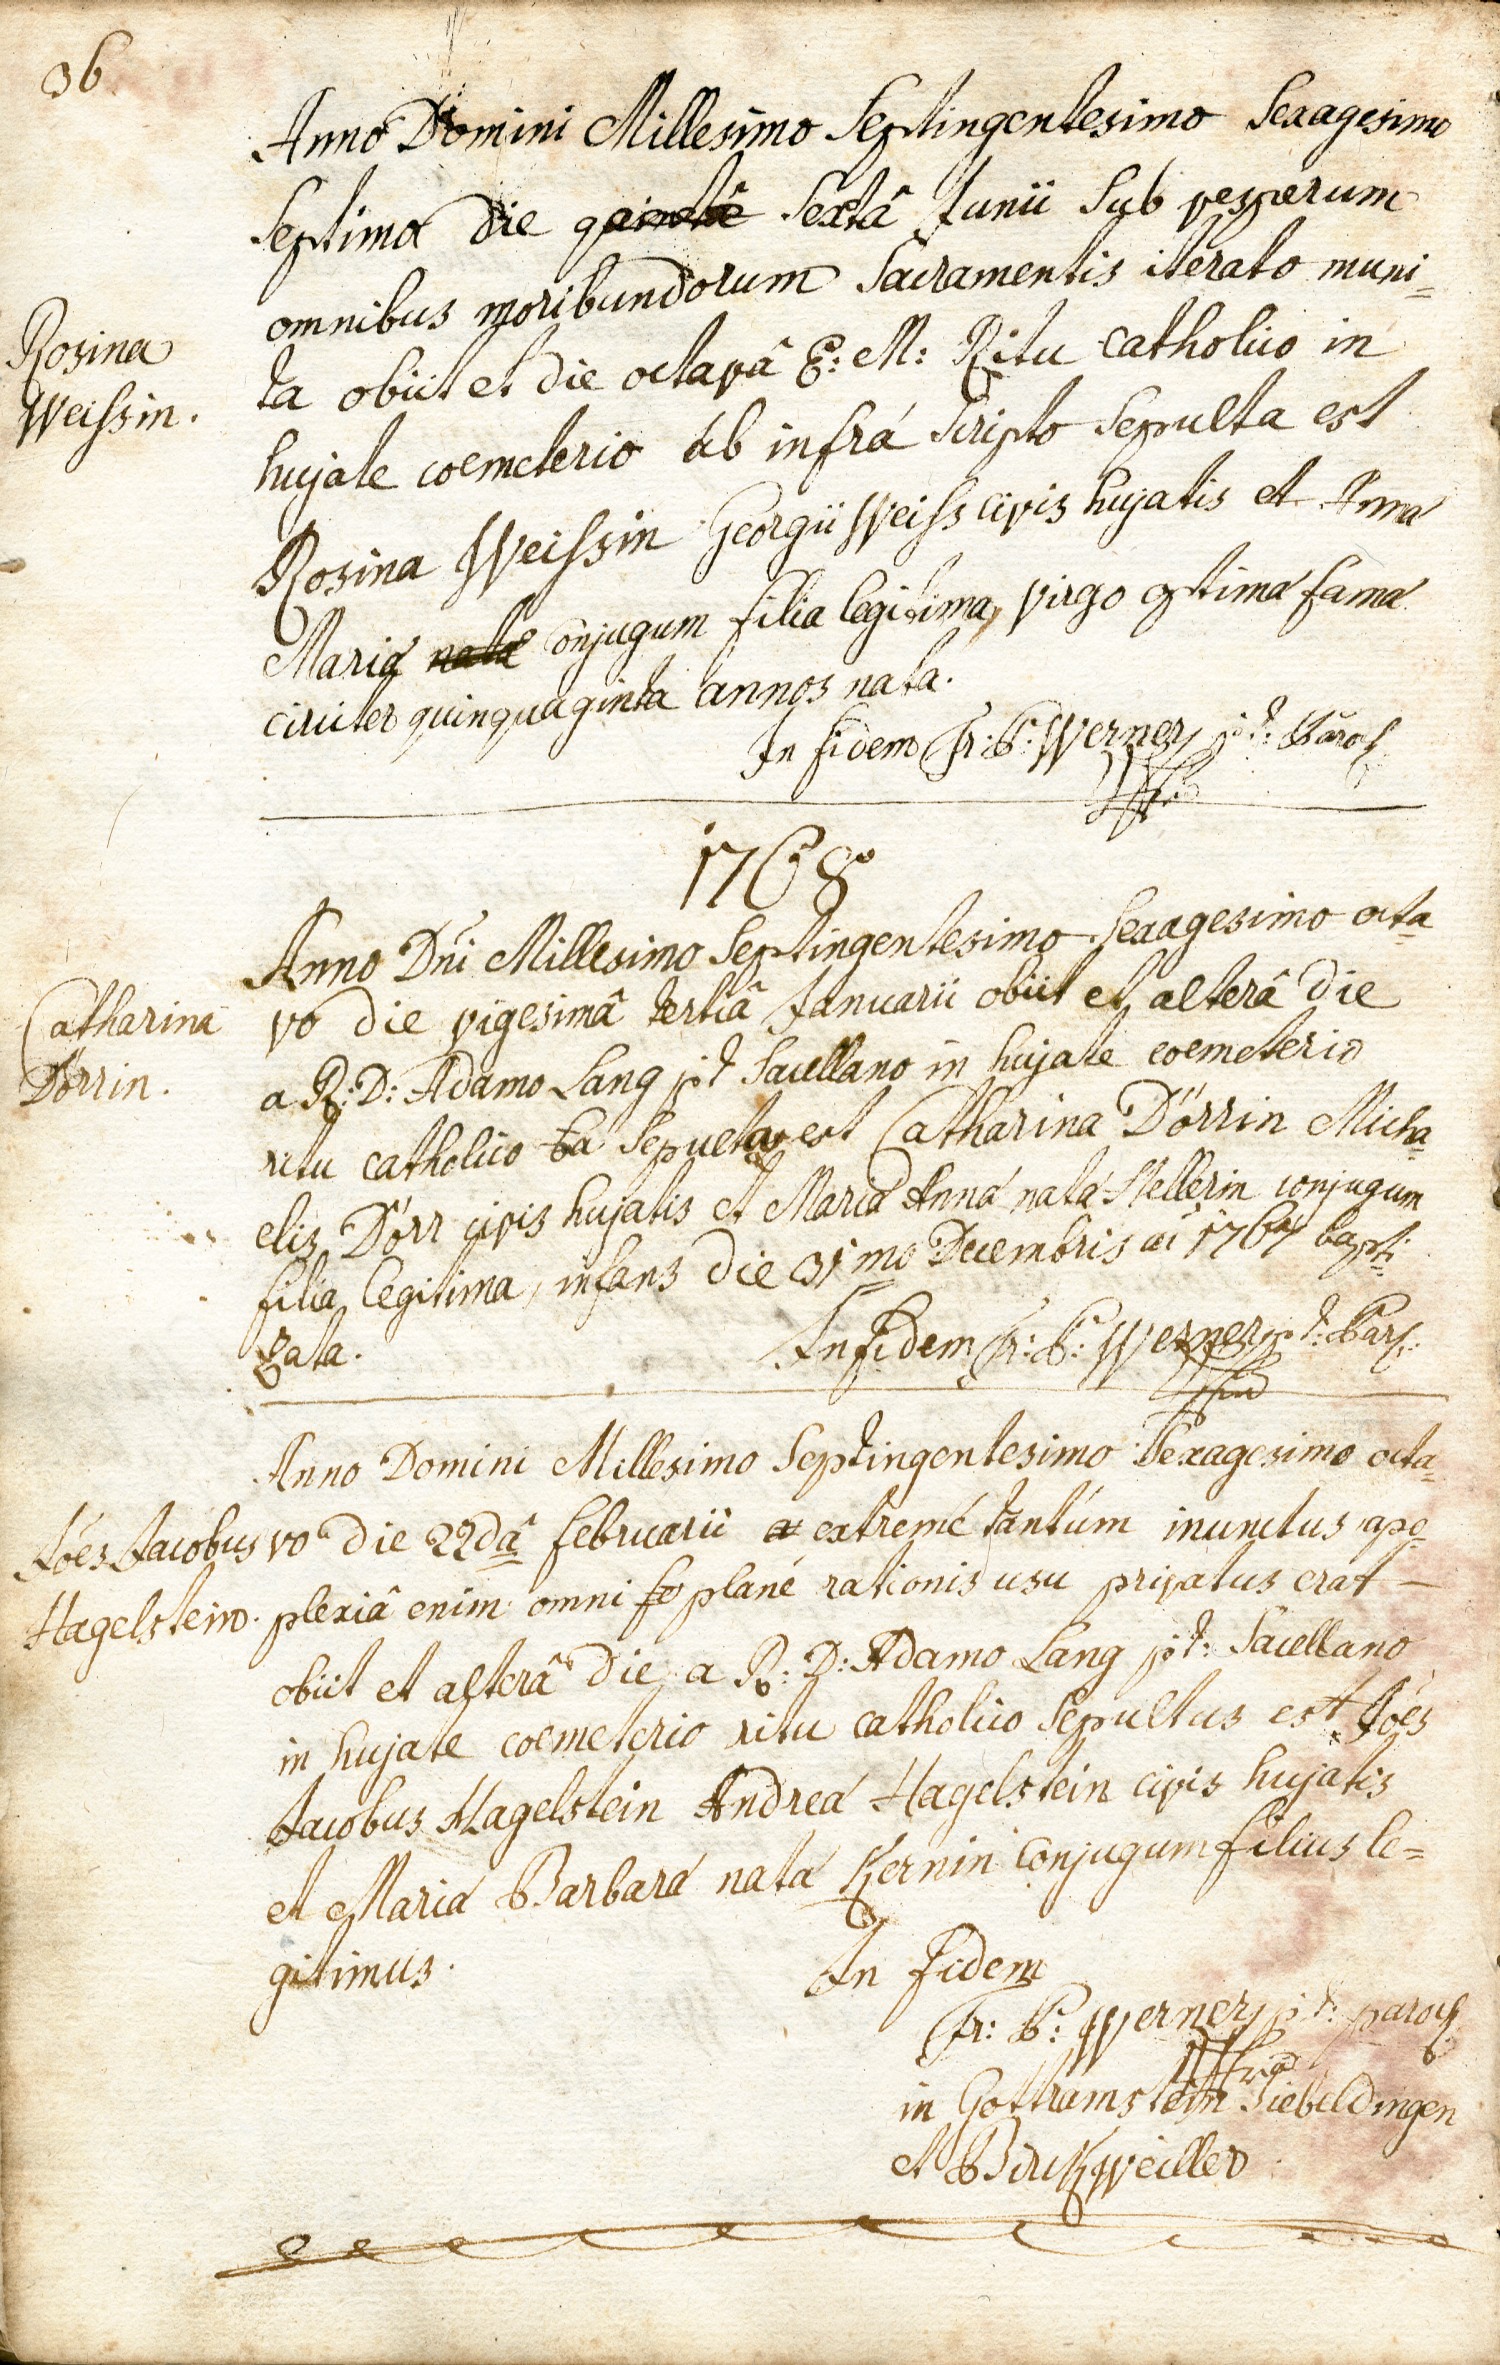 36
Anno Domini Millesimo Septingentesimo Sexagesimo
Septimo die quinta Sextâ Junii Sub vesperum
omnibus moribundorum Sacramentis iterato muni=
Rosina
Weissin.
ta obiit et die octavâ E: M: Ritu Catholico in
hujate coemeterio ab infrá Scripto Sepulta est
Rosina Weissin Georgii Weiss civis hujatis et Anna
Maria nata Conjugum filia legitima, virgo optima fama
circiter quinquaginta annos nata.
In fidem Fr: P: Werner p:t: Paroch
1768
Anno Dńi Millesimo Septingentesimo Sexagesimo octa=
Catharina
Dörrin.
vo die vigesimâ tertiâ Januarii obiit et alterâ die
a R: D: Adamo Lang p.t Sacellano in hujate coemeterio
ritu catholico Sepulta est Catharina Dörrin Micha=
elis Dörr civis hujatis et Maria Anna nata Mellerin conjugum
filia legitima, infans die 31mo Decembris ai 1767 bapti=
zata.
In Fidem Fr: P: Werner p.t: Par:
Anno Domini Millesimo Septingentesimo Sexagesimo octa=
Jóes Jacobus
Hagelstein.
vo die 22dâ februarii extremé tantúm inunctus apo=
plexiâ enim omni plané rationis usu privatus erat —
obiit et alterâ die a R: D: Adamo Lang p:t: Sacellano
in hujate coemeterio ritu catholico Sepultus est Jóes
Jacobus Hagelstein Andrea Hagelstein civis hujatis
et Maria Barbara nata Kernin Conjugum filius le=
gitimus.
In Fidem
Fr: P: Werner p:t: paroch
in Gottramstein Siebeldingen
et Birckweiller